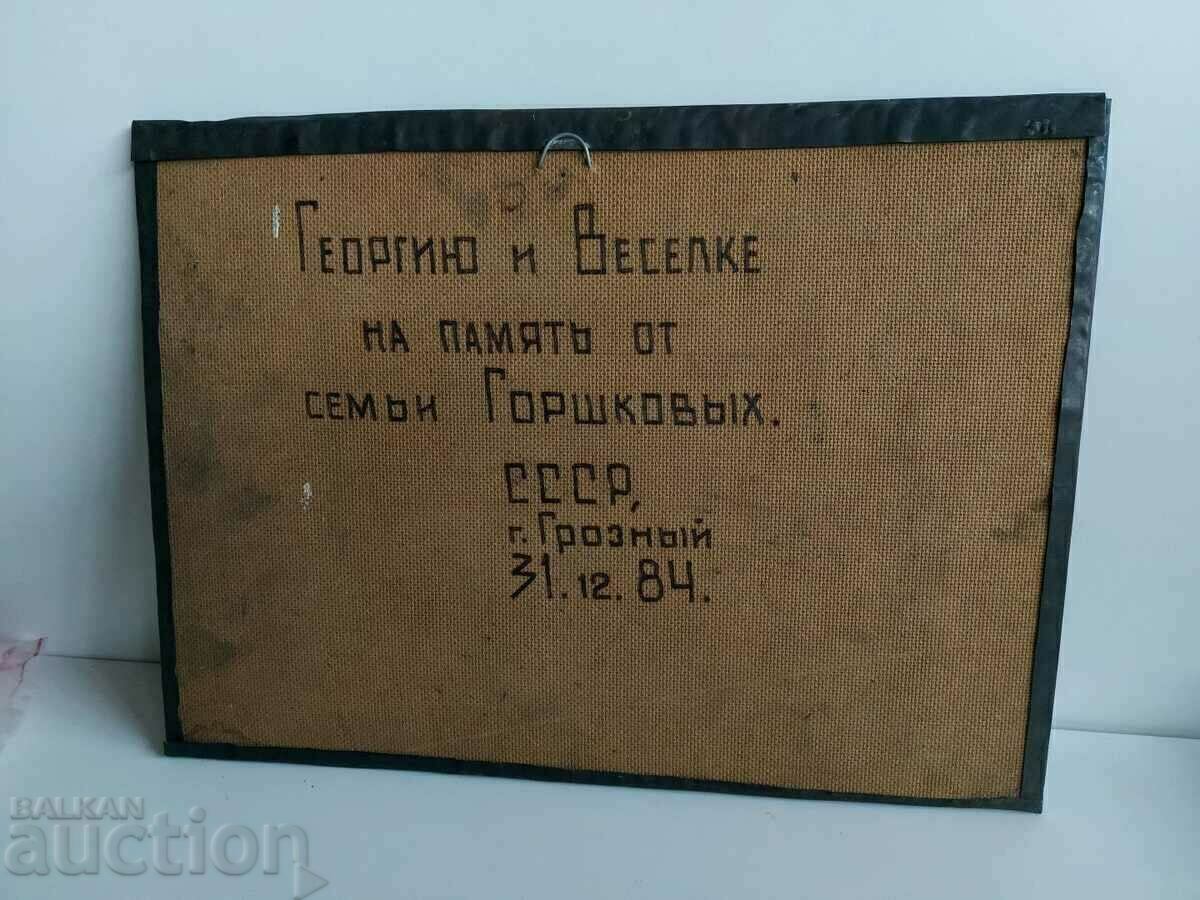 Георгию и Веселке
на память от
семьи Горшковых.
СССР,
г. Грозный
31.12.84.
BALKAN
auction